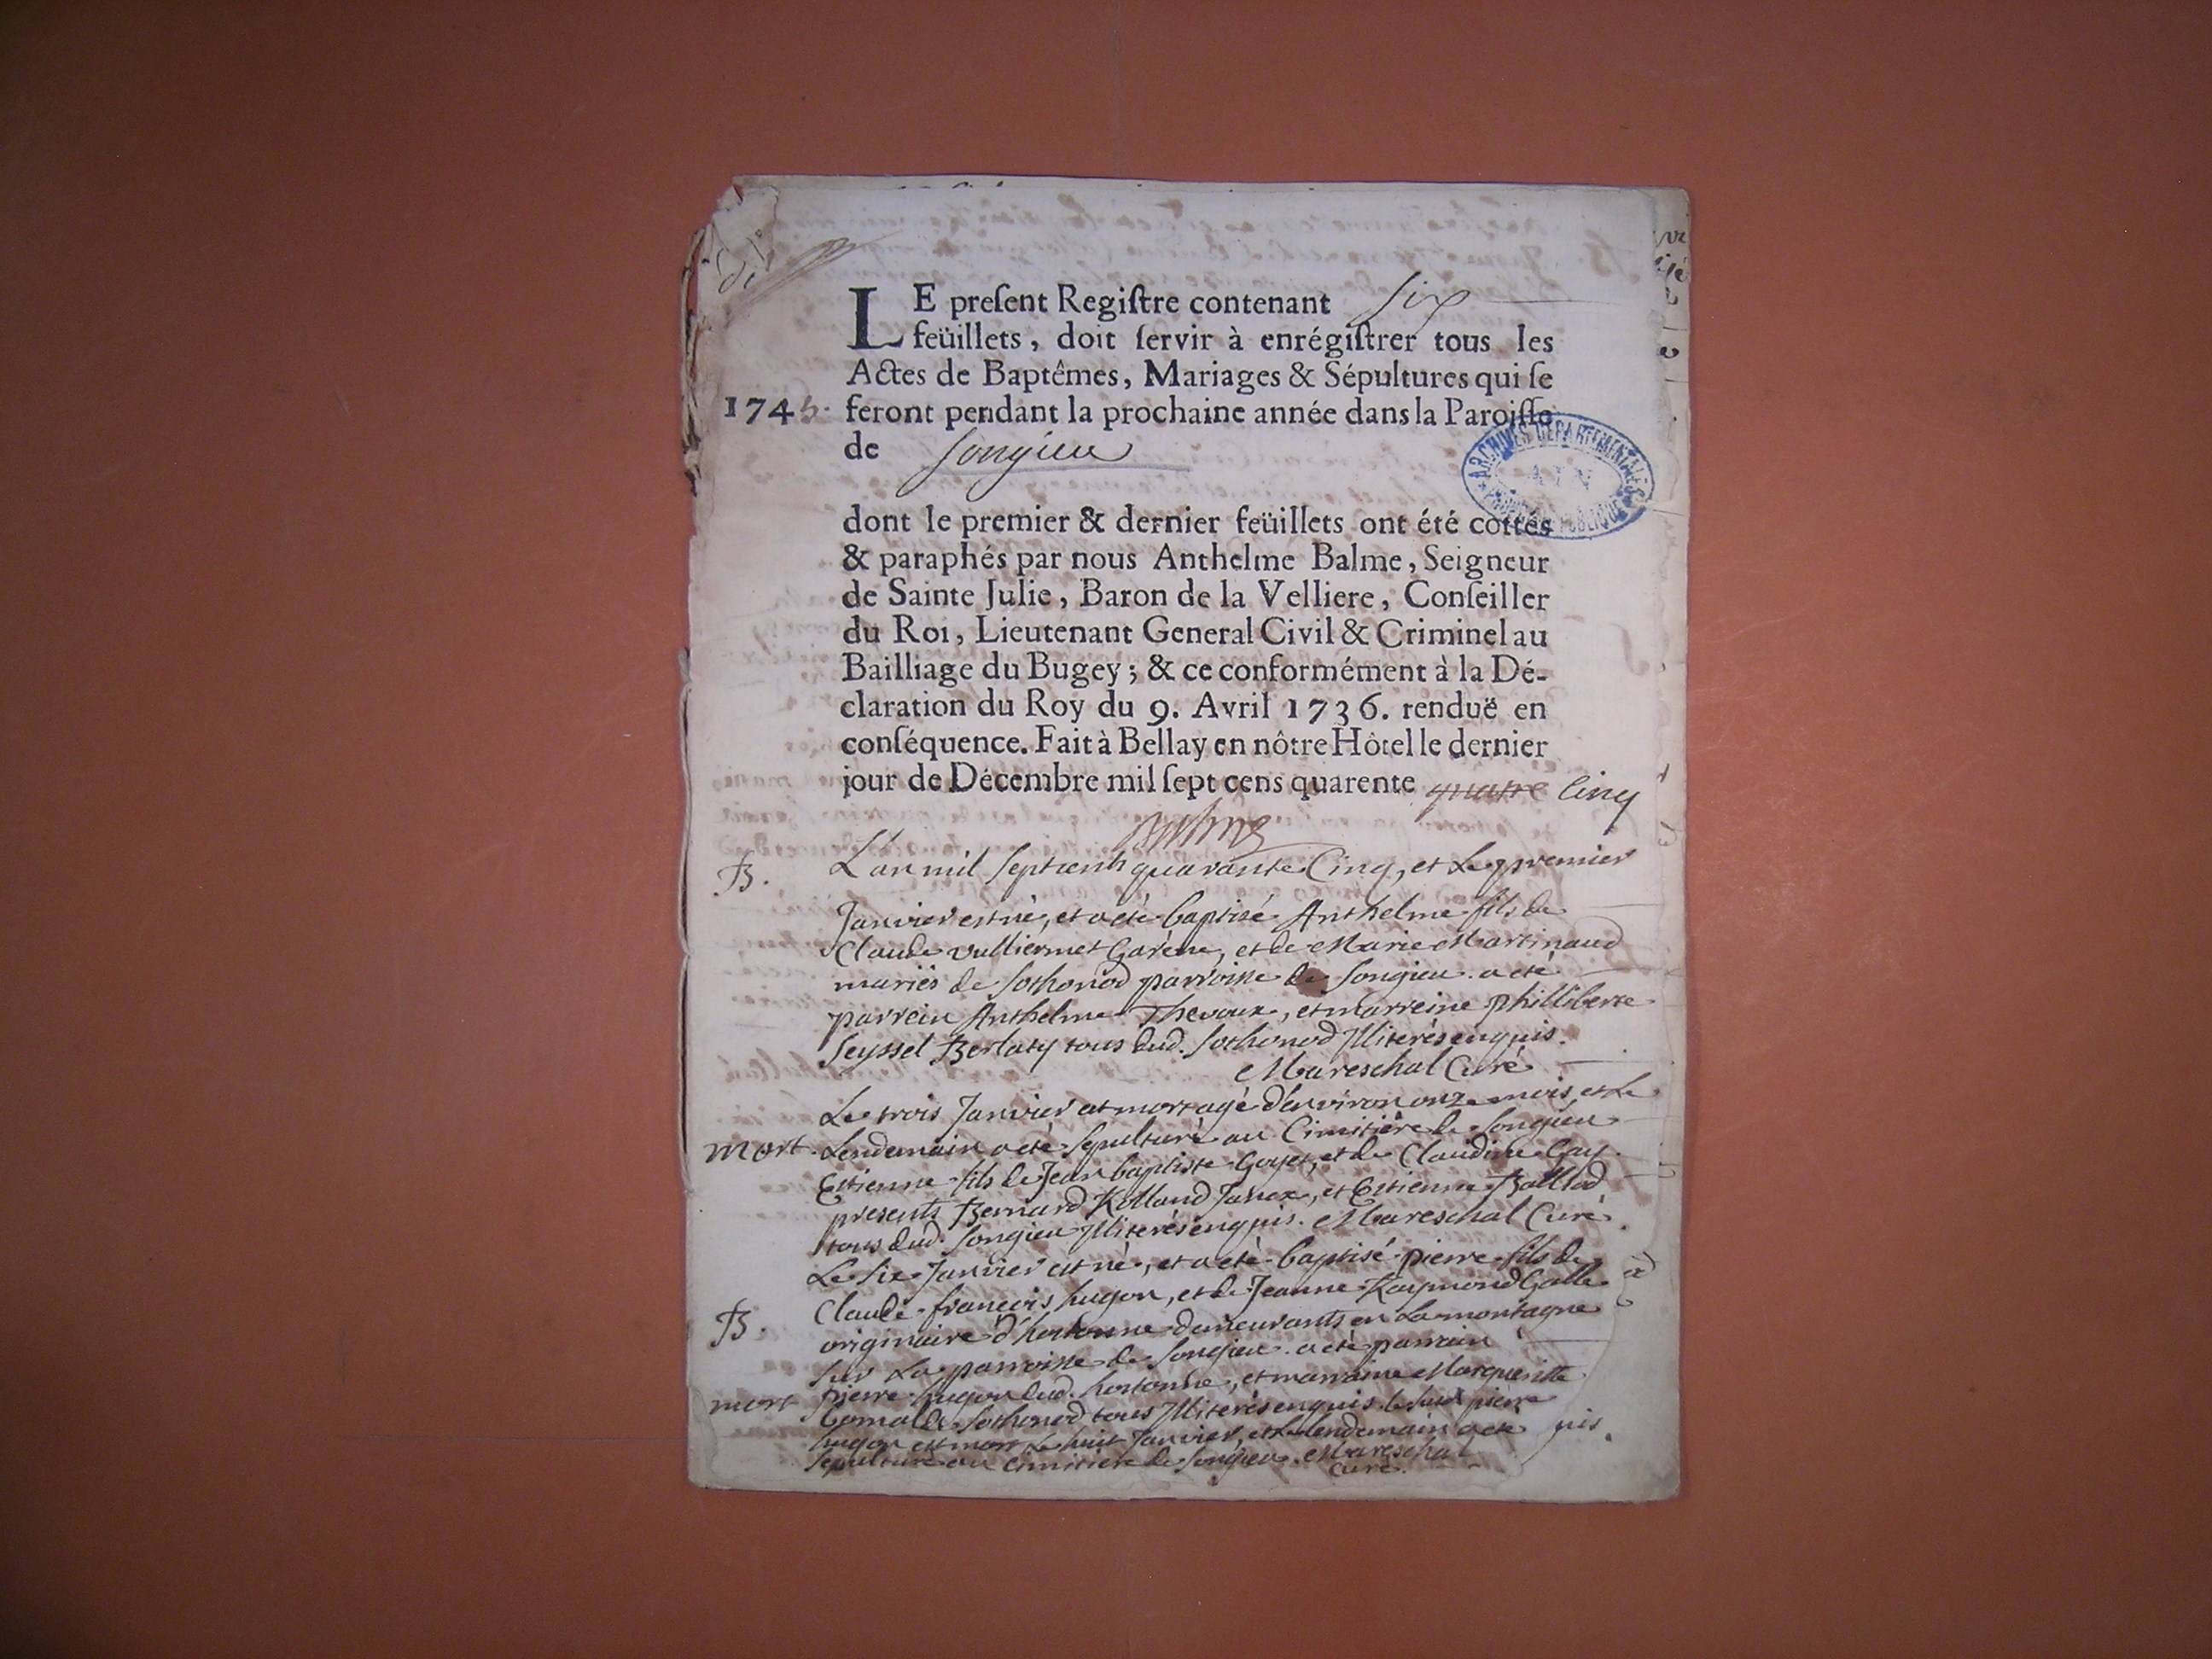 LE preſent Regiſtre contenant six
feüillets, doit ſervir à enrégiſtrer tous les
Actes de Baptêmes, Mariages & Sépultures qui ſe
1745. feront pendant la prochaine année dans la Paroiſſe
de Songieu
ARCHIVES DEPARTEMENTALES
dont le premier & dernier feüillets ont été cottés
& paraphés par nous Anthelme Balme, Seigneur
de Sainte Julie, Baron de la Velliere, Conſeiller
du Roi, Lieutenant General Civil & Criminel au
Bailliage du Bugey; & ce conformément à la Dé-
claration du Roy du 9. Avril 1736. renduë en
conſéquence. Fait à Bellay en nôtre Hôtel le dernier
jour de Décembre mil ſept cens quarente quatre cinq
B. L'an mil sept cents quarante Cinq, et Le premier
Janvier est né, et a eté baptisé Anthelme fils de
Claude Vulliermet Garene, et de Marie Martinaud
mariés de Sothonod parroisse de Songieu. a eté
parrein Anthelme Thevoux, et marreine Philliberte
Seyssel Berlaty tous dud. Sothonod Illiterés enquis.
Mareschal Curé
Le trois Janvier est mort agé d'environ onze mois, et Le
mort. Lendemain a eté sepulturé au Cimitiere de Songieu
Estienne fils de Jean baptiste Goyet, et de Claudine Gay.
presents Bernard Rolland Janex, et Estienne Ballod
tous dud. Songieu Illiterés enquis. Mareschal Curé.
Le six Janvier est né, et a eté baptisé pierre fils de
B. Claude françois hugon, et de Jeanne Raymond Galle
originaire d'hostonne demeurants en La montagne
sur La parroisse de Songieu. a eté parrain
mort pierre hugon dud. hostonne, et marraine Marguerite
de Sothonod tous Illiterés enquis. le susd. pierre
hugon est mort Le huit Janvier, et Le lendemain a eté
sepulturé au Cimitiere de Songieu. Mareschal
curé.